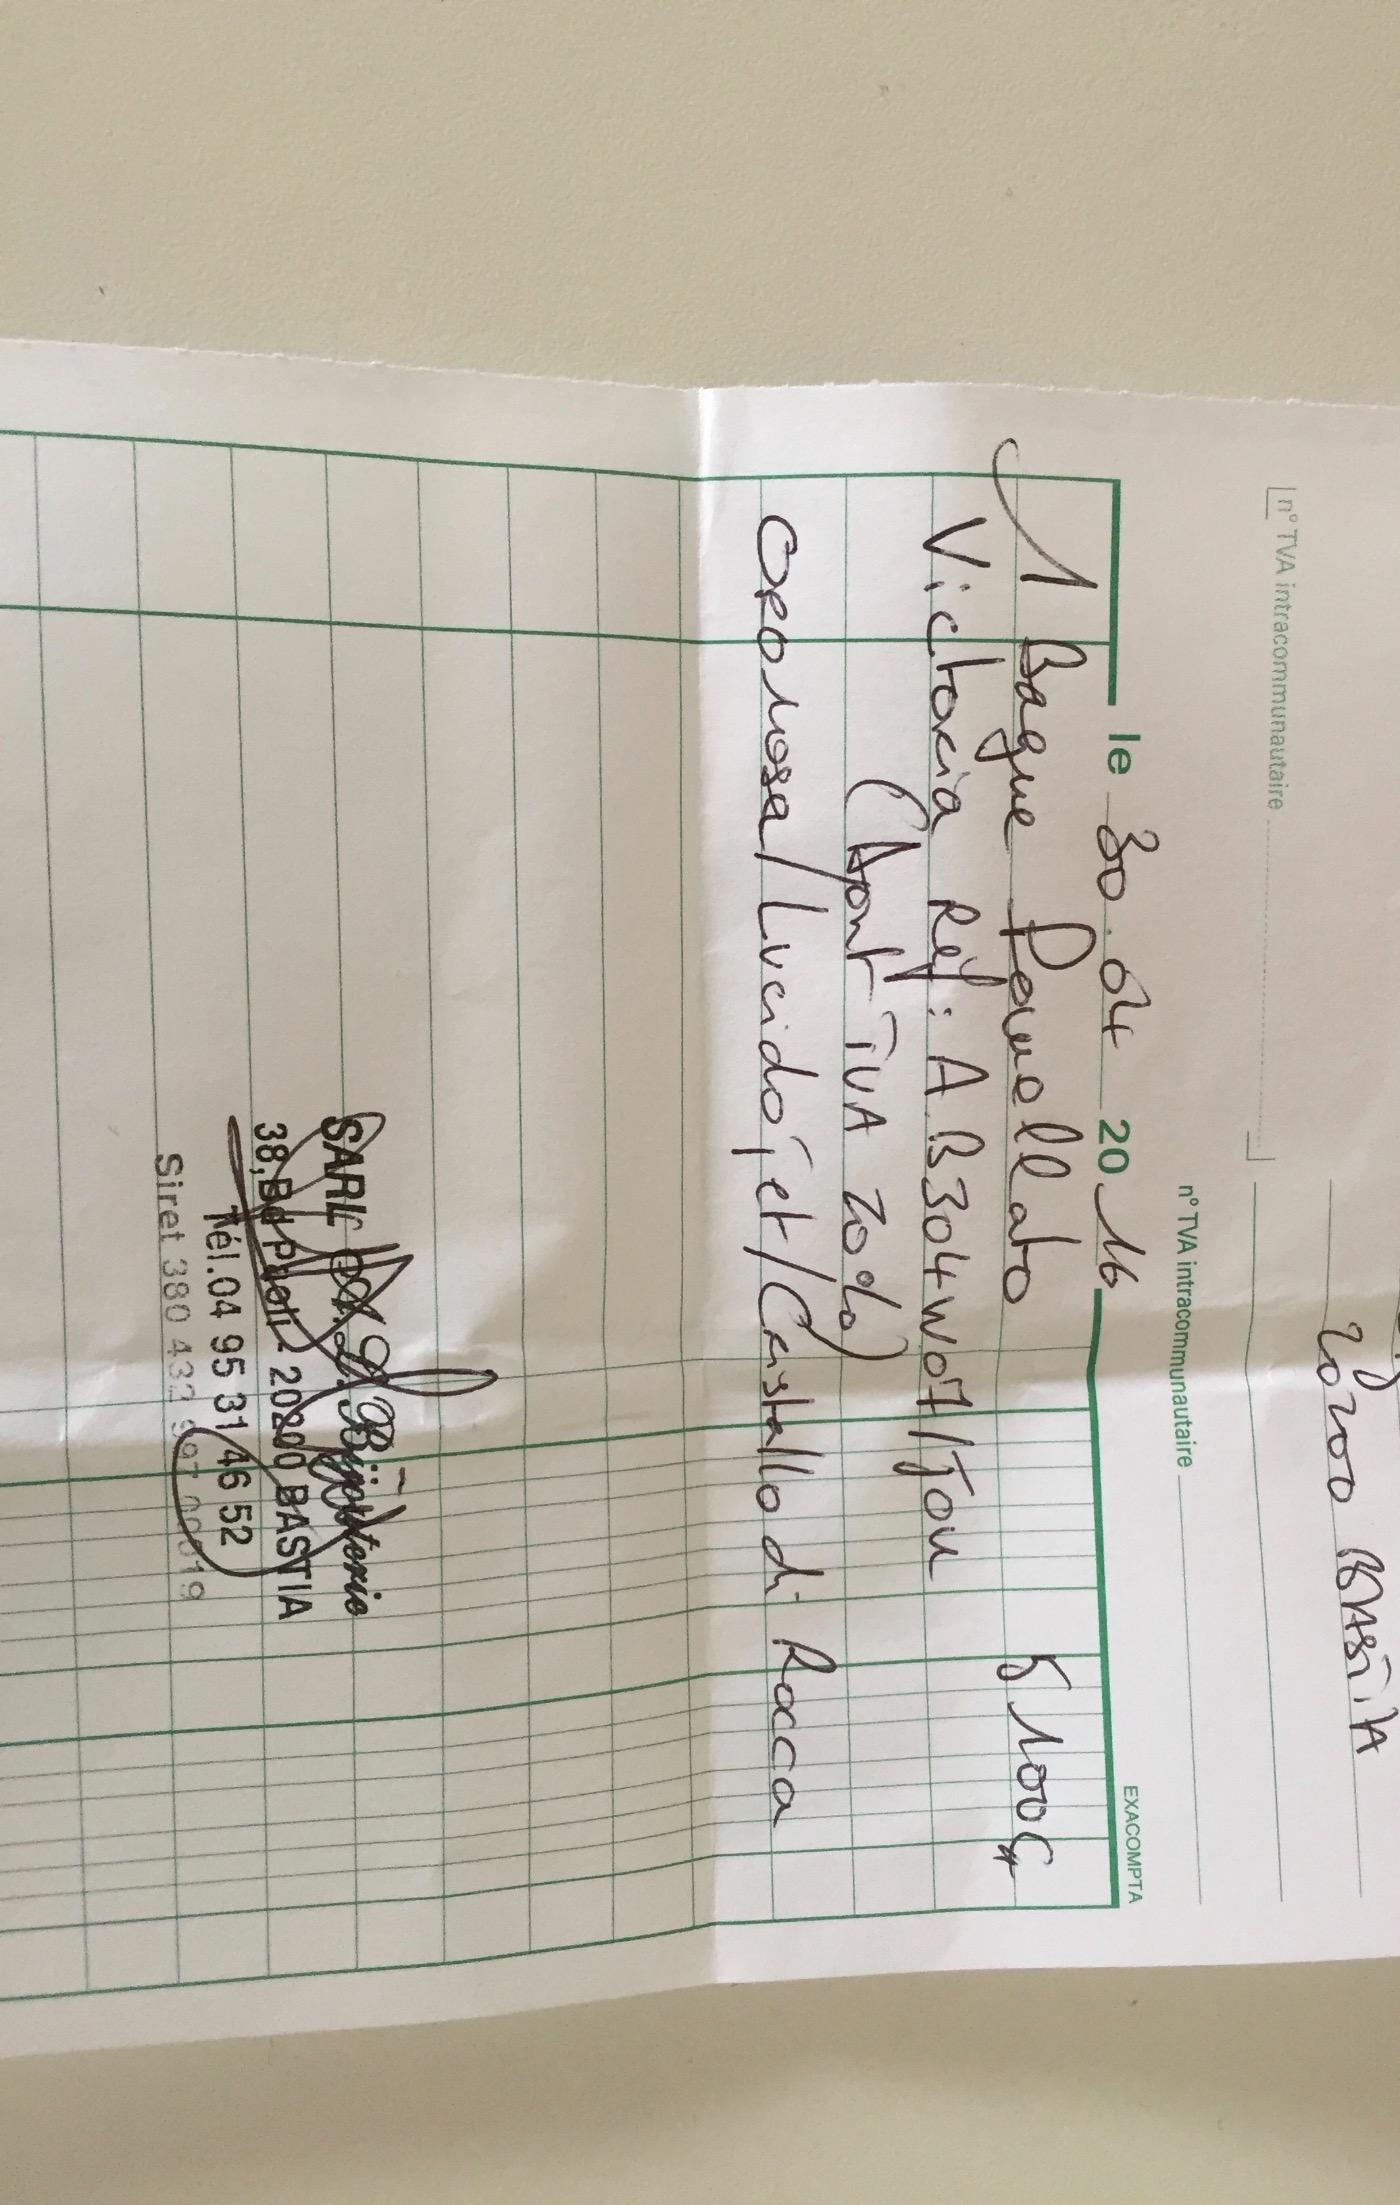 20200 BASTIA
n° TVA intracommunautaire
n° TVA intracommunautaire
le 30.04 2016
EXACOMPTA
1 Bague Pomellato 5100€
Victoria Réf: A.B304W07/Jou
(dont TVA 20%)
ORO rosa/Lucido, jet/Cristallo di Rocca
SARL Bijouterie
38, Bd Paoli - 20200 BASTIA
Tél. 04 95 31 46 52
Siret 380 432 997 00019